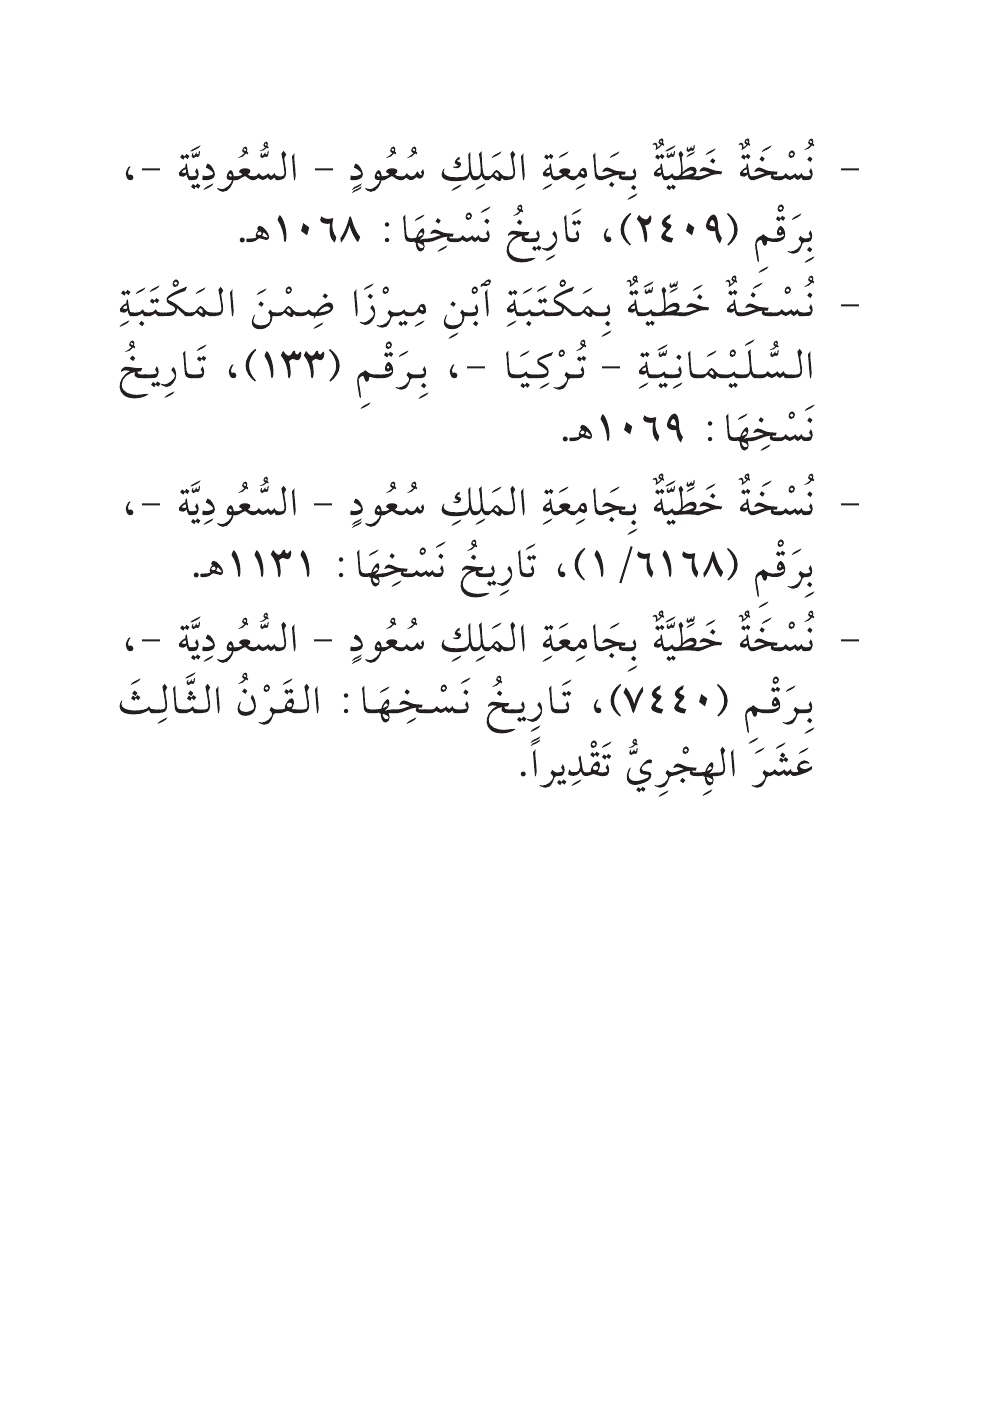 - نُسْخَةٌ خَطِّيَّةٌ بِجَامِعَةِ المَلِكِ سُعُودٍ - السُّعُودِيَّة -،
بِرَقْمِ (٢٤٠٩)، تَارِيخُ نَسْخِهَا: ١٠٦٨هـ.
- نُسْخَةٌ خَطِّيَّةٌ بِمَكْتَبَةِ ٱبْنِ مِيرْزَا ضِمْنَ المَكْتَبَةِ
السُّلَيْمَانِيَّةِ - تُرْكِيَا -، بِرَقْمِ (١٣٣)، تَارِيخُ
نَسْخِهَا: ١٠٦٩هـ.
- نُسْخَةٌ خَطِّيَّةٌ بِجَامِعَةِ المَلِكِ سُعُودٍ - السُّعُودِيَّة -،
بِرَقْمِ (٦١٦٨/ ١)، تَارِيخُ نَسْخِهَا: ١١٣١هـ.
- نُسْخَةٌ خَطِّيَّةٌ بِجَامِعَةِ المَلِكِ سُعُودٍ - السُّعُودِيَّة -،
بِرَقْمِ (٧٤٤٠)، تَارِيخُ نَسْخِهَا: القَرْنُ الثَّالِثَ
عَشَرَ الهِجْرِيُّ تَقْدِيراً.